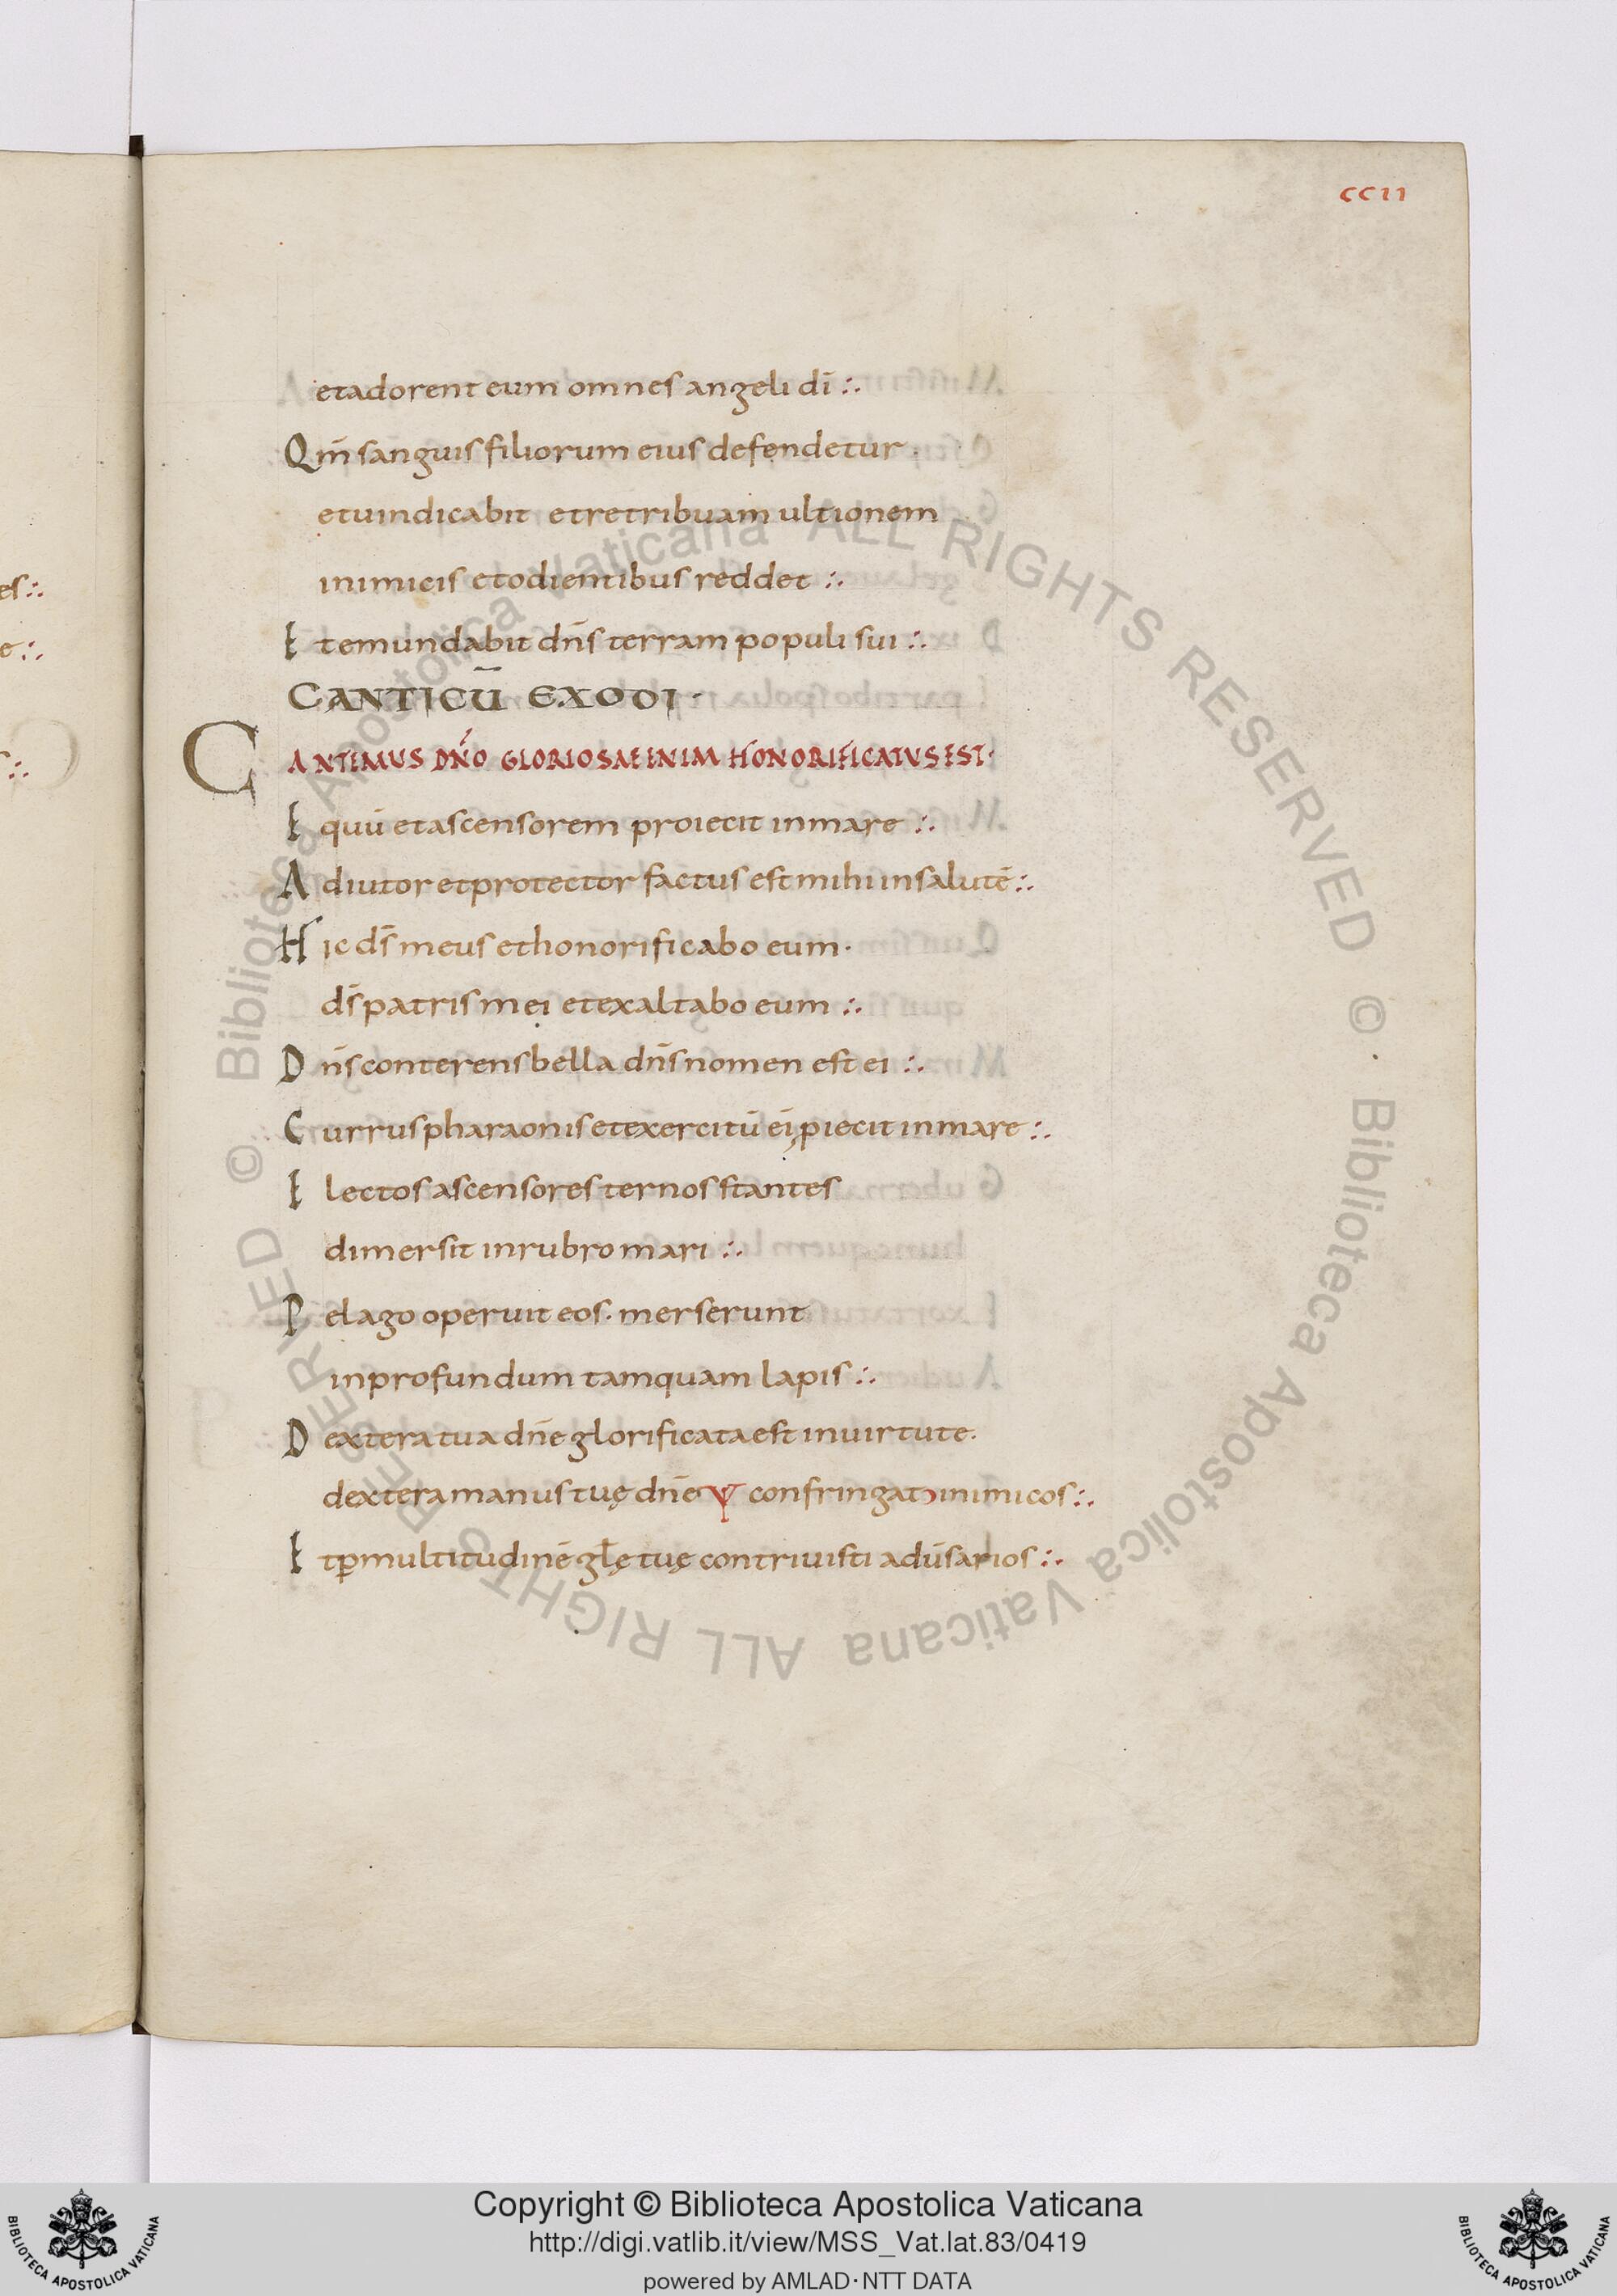 ccii
es:.
e:.
:.
etadorent eum omnes angeli dī :.
Qm̄ sanguis filiorum eius defendetur.
etuindicabit etretribuam ultionem
inimicis etodientibus reddet :.
E temundabit dn̄s terram populi sui :.
CANTICŪ EXODI ·
C ANTEMUS DN̄O GLORIOSAE ENIM HONORIFICATUS EST·
E quū etascensorem proiecit inmare :.
A diutor etprotector factus est mihi insalutē :.
H ic ds̄ meus ethonorificabo eum·
ds̄ patris mei etexaltabo eum :.
D n̄s conterens bella dn̄s nomen est ei :.
C urrus pharaonis etexercitū ei; piecit inmare :.
E lectos ascensores ternos stantes
dimersit inrubro mari :.
P elago operuit eos· merserunt
inprofundum tamquam lapis :.
D extera tua dn̄e glorificata est inuirtute.
dextera manus tuę dn̄e confringat inimicos :.
E tꝑmultitudinē gl̄ę tuę contriuisti adūsarios :.
© Biblioteca Apostolica Vaticana ALL RIGHTS RESERVED © Biblioteca Apostolica Vaticana ALL RIGHTS RESERVED
Copyright © Biblioteca Apostolica Vaticana
http://digi.vatlib.it/view/MSS_Vat.lat.83/0419
powered by AMLAD·NTT DATA
BIBLIOTECA APOSTOLICA VATICANA
BIBLIOTECA APOSTOLICA VATICANA